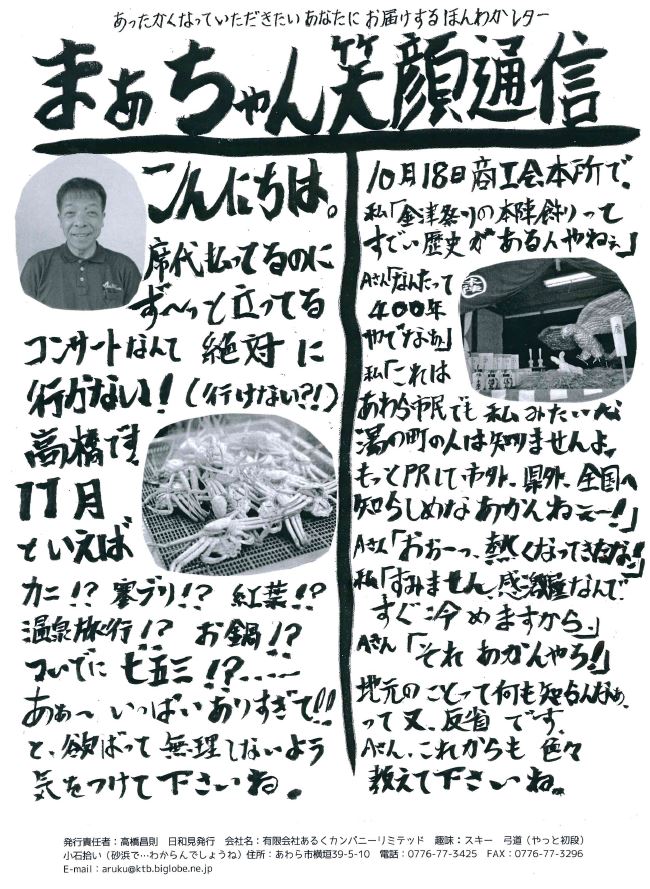 あったかくなっていただきたい あなたに お届けする ほんわかレター
まぁちゃん笑顔通信
こんにちは。
席代払ってるのに
ず〜っと立ってる
コンサートなんて 絶対に
行かない！（行けない?!）
高橋です。
11月
といえば
カニ!? 寒ブリ!? 紅葉!?
温泉旅行!? お鍋!?
ついでに 七五三 !?……
あぁ〜 いっぱい ありすぎて!!
と、欲ばって 無理しないよう
気をつけて下さいね。
10月18日 商工会本所で。
私「金津祭りの本陣飾りって
すごい歴史があるんやねぇ」
Aさん「なんたって
400年
やでなぁ」
私「これは
あわら市民でも 私みたいな
湯の町の人は知りませんよ。
もっとPRして市外、県外、全国へ
知らしめな あかんねぇー！」
Aさん「おぉーっ、熱くなってきたな！」
私「すみません 感激屋なんで
すぐ冷めますから。」
Aさん「それ あかんやろ！」
地元のことって何も知らんなぁ
って 又、反省 です。
Aさん、これからも 色々
教えて下さいね。
発行責任者：高橋昌則　日和見発行　会社名：有限会社あるくカンパニーリミテッド　趣味：スキー　弓道（やっと初段）
小石拾い（砂浜で…わからんでしょうね）住所：あわら市横垣39-5-10　電話：0776-77-3425　FAX：0776-77-3296
E-mail：aruku@ktb.biglobe.ne.jp